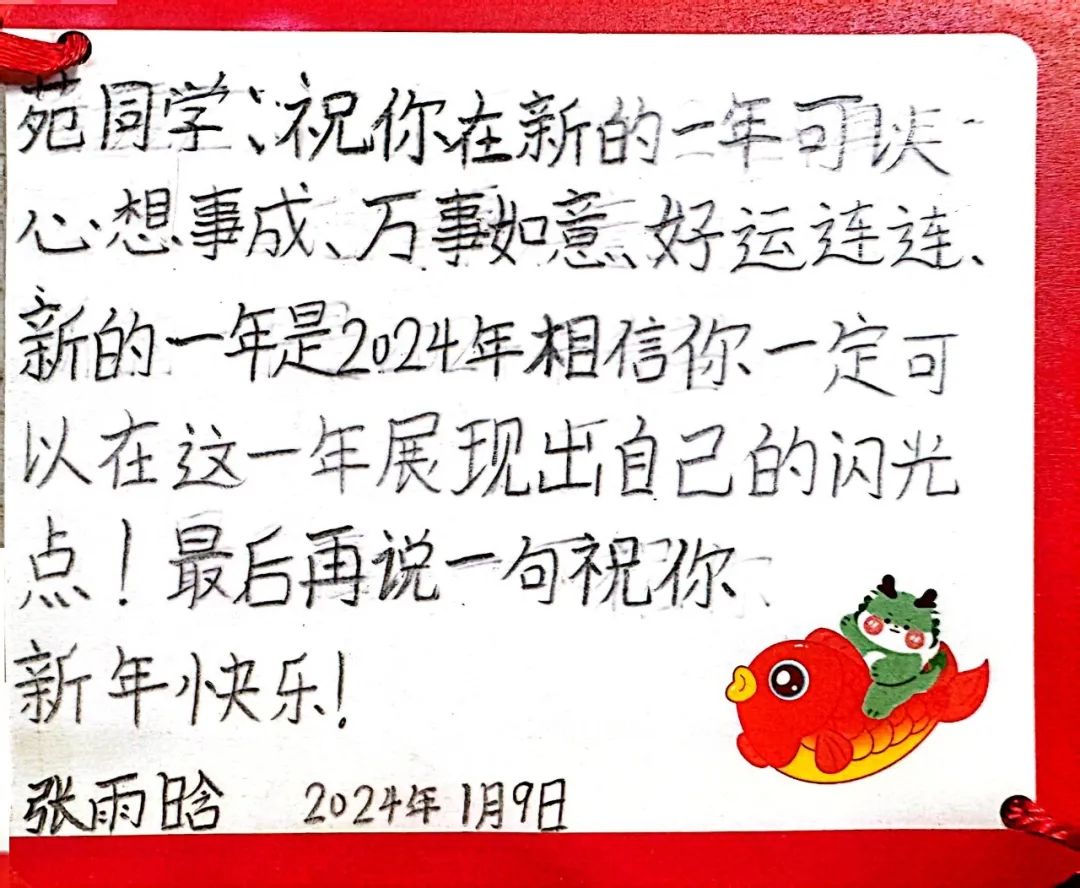 苑同学、祝你在新的一年可以
心想事成、万事如意、好运连连、
新的一年是2024年相信你一定可
以在这一年展现出自己的闪光
点！最后再说一句祝你
新年快乐！
张雨晗 2024年1月9日